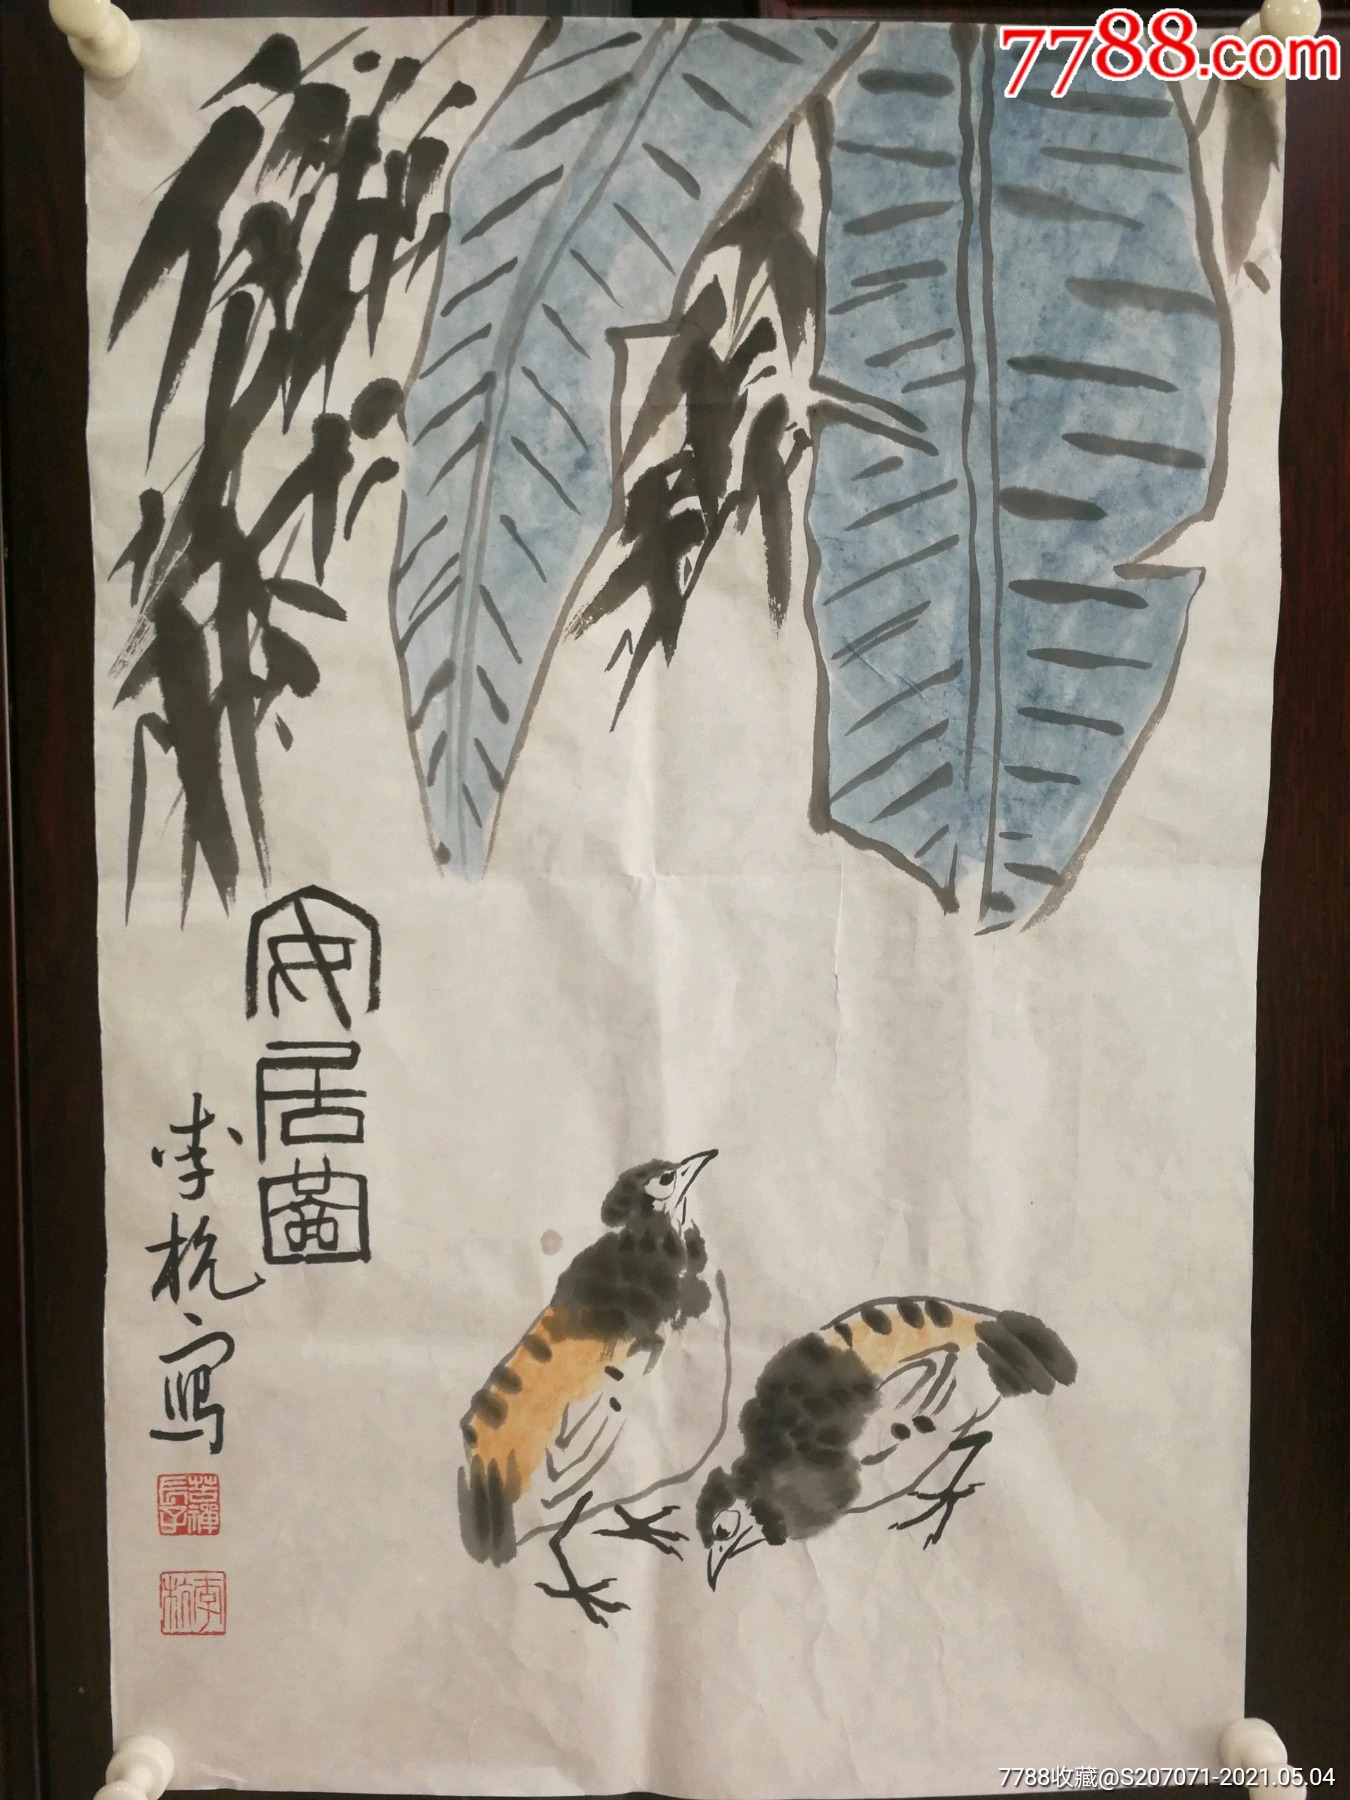 7788.com
安居圖
李杭写
苦禪長子
李杭
7788收藏@S207071-2021.05.04